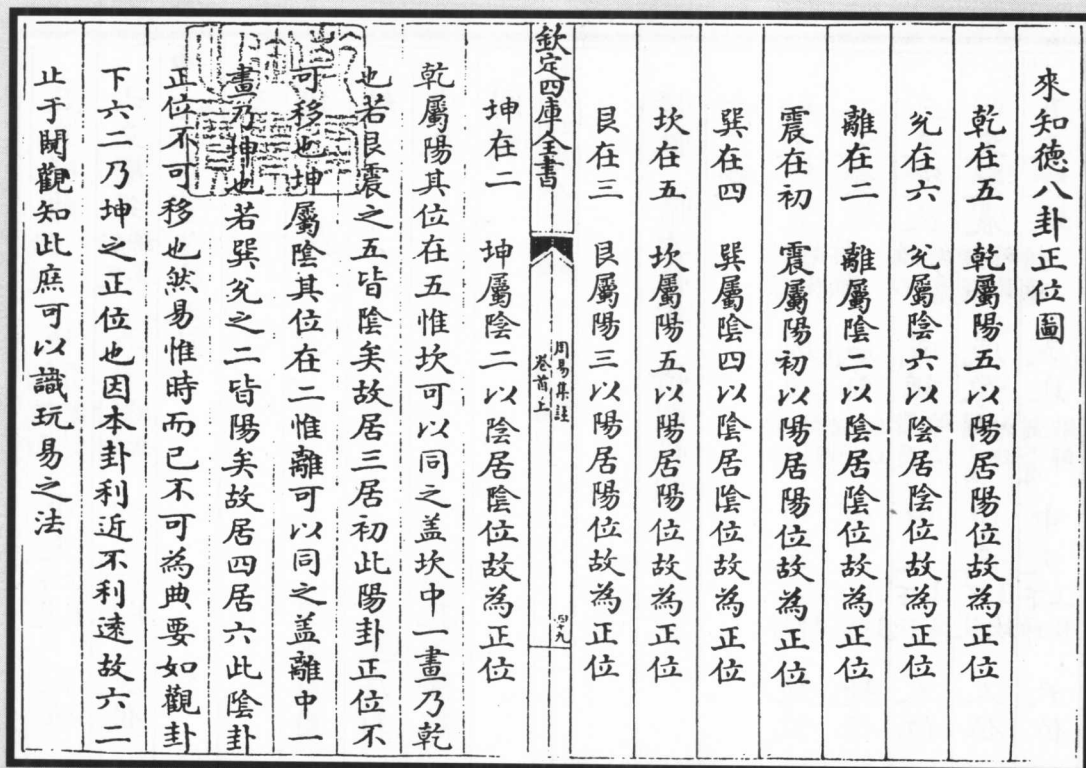 來知德八卦正位圖
乾在五 乾屬陽五以陽居陽位故為正位
兊在六 兊屬陰六以陰居陰位故為正位
離在二 離屬陰二以陰居陰位故為正位
震在初 震屬陽初以陽居陽位故為正位
巽在四 巽屬陰四以陰居陰位故為正位
坎在五 坎屬陽五以陽居陽位故為正位
艮在三 艮屬陽三以陽居陽位故為正位
欽定四庫全書
周易集註
卷首上
四十九
坤在二 坤屬陰二以陰居陰位故為正位
乾屬陽其位在五惟坎可以同之盖坎中一畫乃乾
也若艮震之五皆陰矣故居三居初此陽卦正位不
可移也坤屬陰其位在二惟離可以同之盖離中一
畫乃坤也若巽兊之二皆陽矣故居四居六此陰卦
正位不可移也然易惟時而已不可為典要如觀卦
下六二乃坤之正位也因本卦利近不利遠故六二
止于闚觀知此庶可以識玩易之法